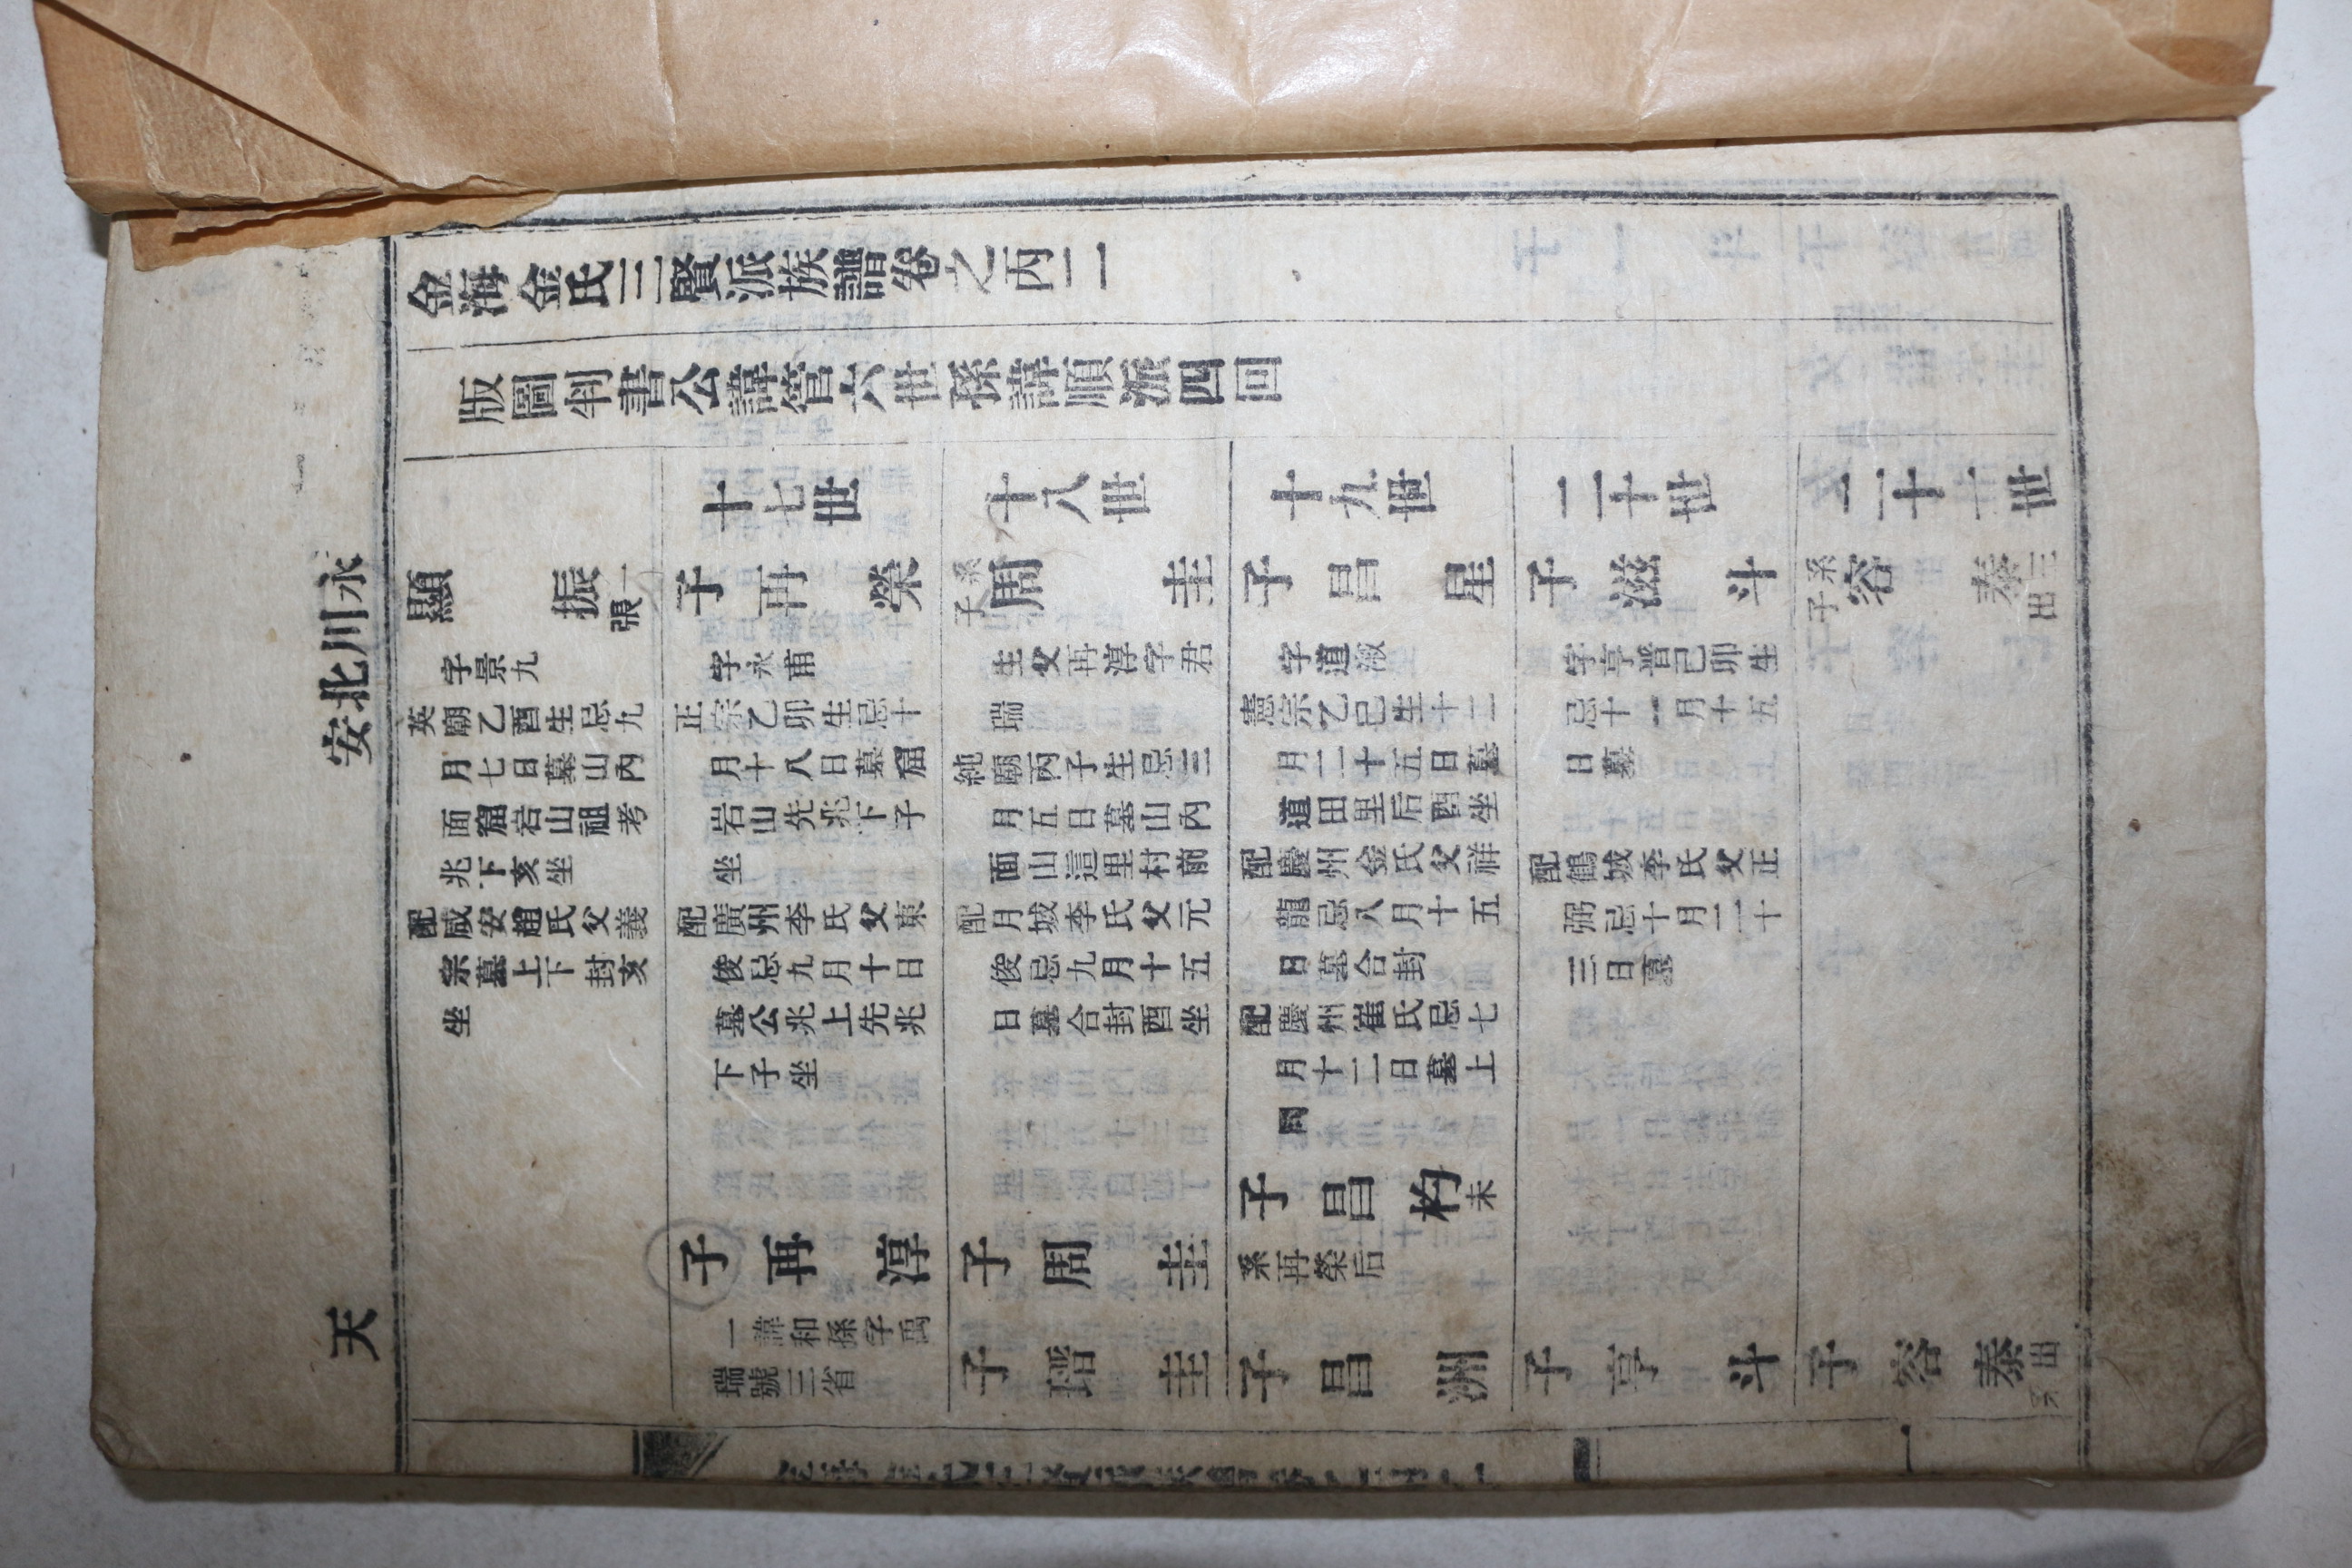 金海金氏三賢派族譜卷之丙二
版圖判書公諱管六世孫諱順派四回
永川北安
天
顯振 一張
字景九
英廟乙酉生忌九
月七日墓山內
面窟岩山祖考
兆下亥坐
配咸安趙氏父義
宗墓上下封亥
坐
十七世
子再榮
字永甫
正宗乙卯生忌十
月十八日墓窟
岩山先兆下子
坐
配廣州李氏父東
俊忌九月十日
墓公兆上先兆
下子坐
子再淳
一諱和孫字禹
瑞號三省
十八世
系子周圭
生父再淳字君
瑞
純廟丙子生忌三
月五日墓山內
面山這里村前
配月城李氏父元
俊忌九月十五
日墓合封酉坐
子周圭
子瑨圭
十九世
子昌星
字道淑
憲宗乙巳生十二
月二十五日墓
道田里后酉坐
配慶州金氏父祥
龍忌八月十五
日墓合封
配慶州崔氏忌七
月十二日墓上
同
子昌杓 未
系再榮后
子昌洲
二十世
子滋斗
字亨晋己卯生
忌十一月十五
日墓
配鶴城李氏父正
弼忌十月二十
三日墓
子亨斗
二十一世
系子容泰 三出
子容泰 出系